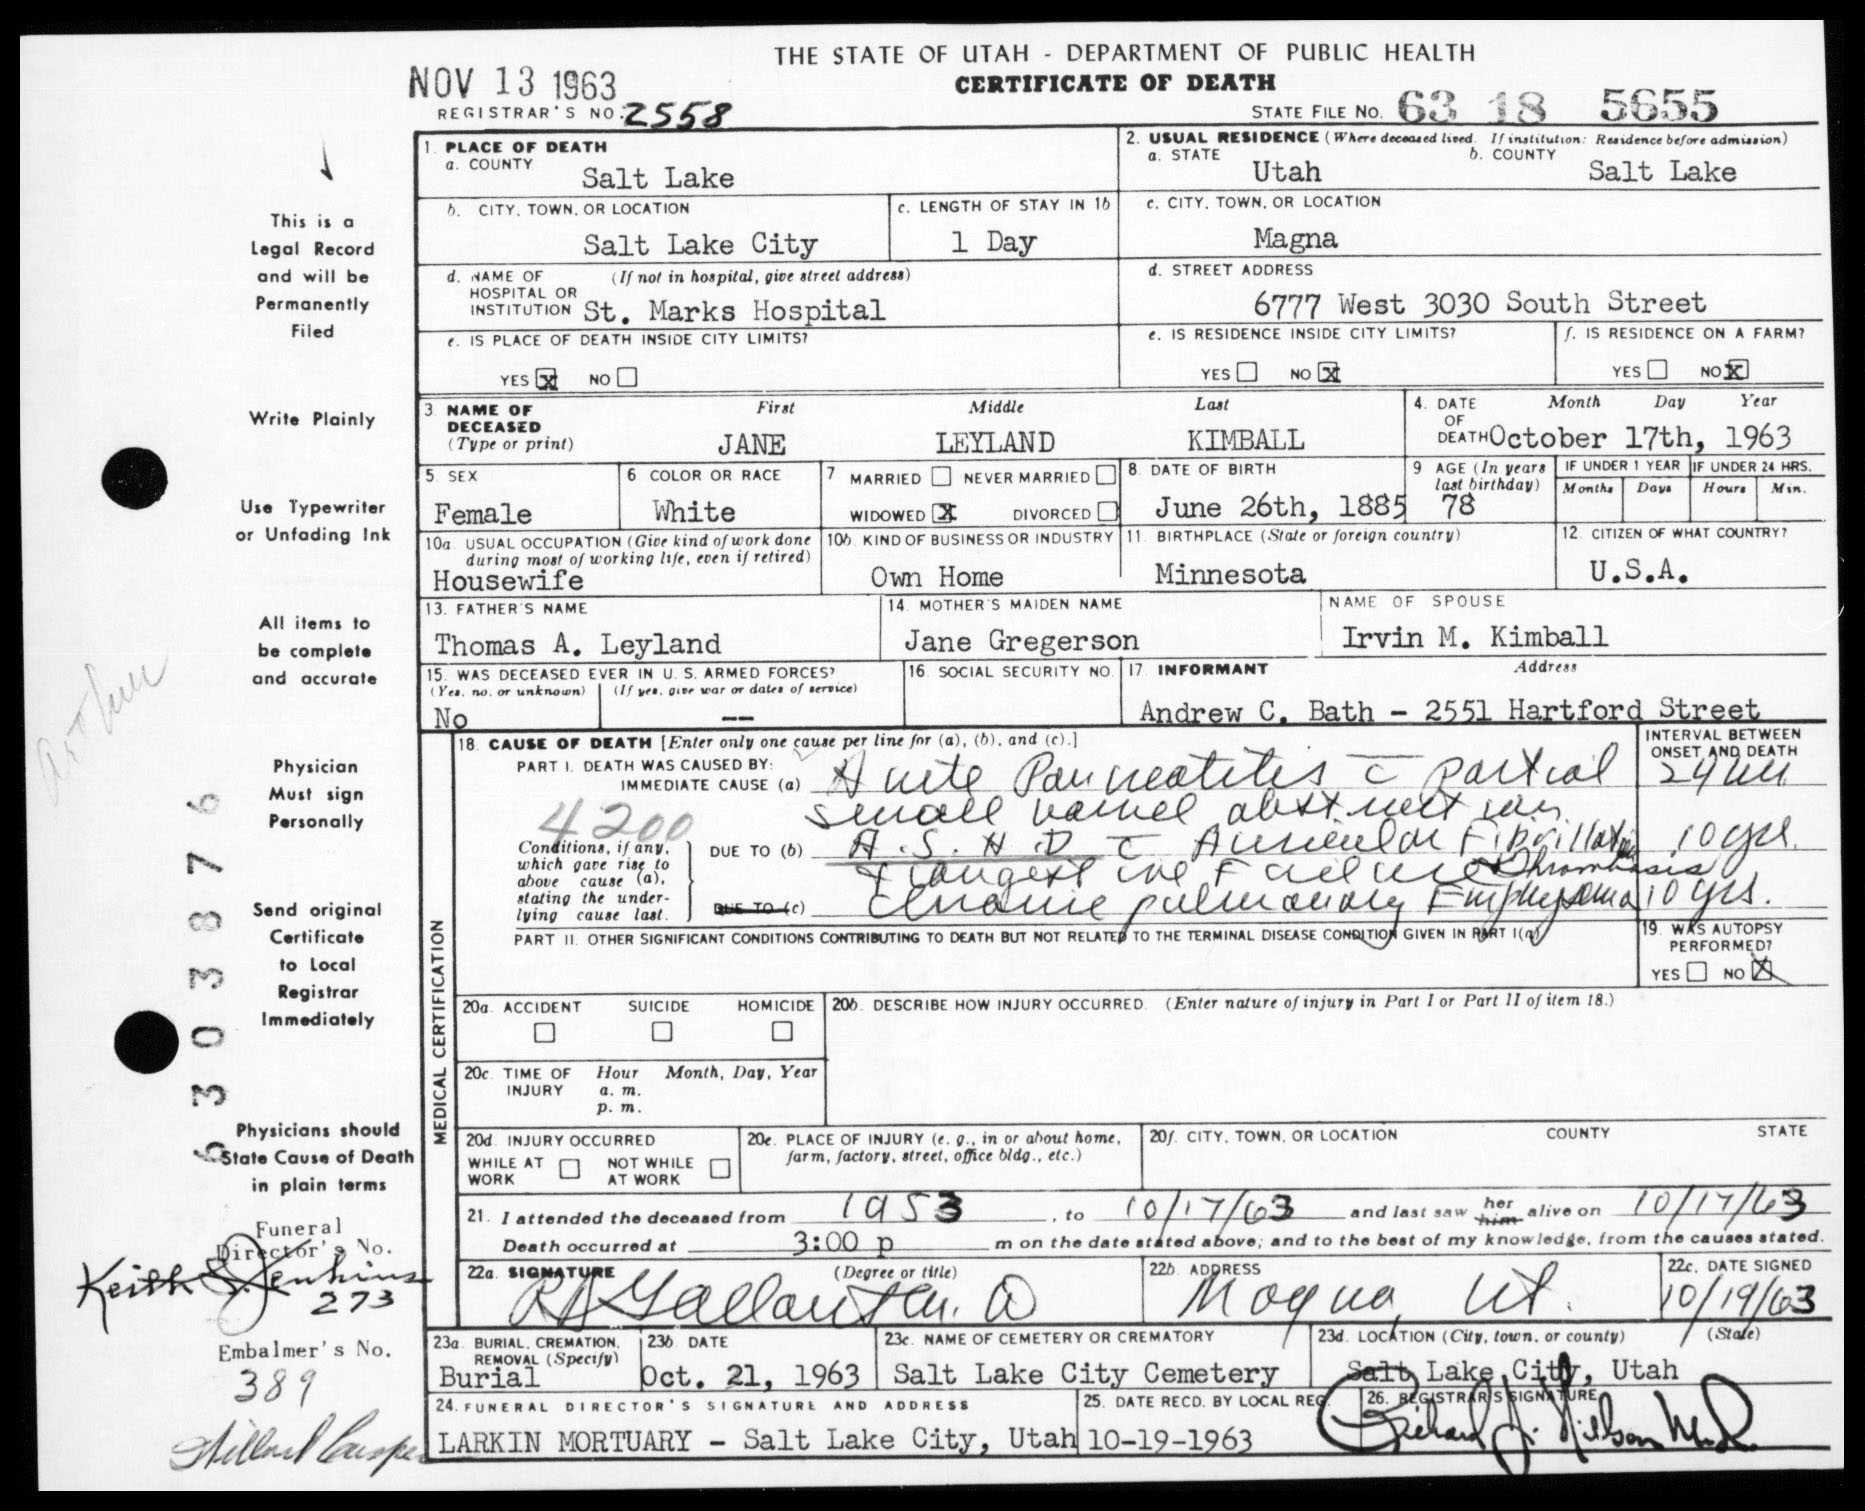 THE STATE OF UTAH - DEPARTMENT OF PUBLIC HEALTH
CERTIFICATE OF DEATH
NOV 13 1963
REGISTRAR'S NO. 2558
STATE FILE NO. 63 18 5655
1. PLACE OF DEATH
a. COUNTY
Salt Lake
2. USUAL RESIDENCE (Where deceased lived. If institution: Residence before admission)
a. STATE b. COUNTY
Utah Salt Lake
b. CITY, TOWN, OR LOCATION
Salt Lake City
c. LENGTH OF STAY IN 1b
1 Day
c. CITY, TOWN, OR LOCATION
Magna
d. NAME OF (If not in hospital, give street address)
HOSPITAL OR
INSTITUTION St. Marks Hospital
d. STREET ADDRESS
6777 West 3030 South Street
e. IS PLACE OF DEATH INSIDE CITY LIMITS?
YES X NO
e. IS RESIDENCE INSIDE CITY LIMITS?
YES NO X
f. IS RESIDENCE ON A FARM?
YES NO X
3. NAME OF DECEASED (Type or print)
First Middle Last
JANE LEYLAND KIMBALL
4. DATE OF DEATH Month Day Year
October 17th, 1963
5. SEX
Female
6 COLOR OR RACE
White
7 MARRIED NEVER MARRIED
WIDOWED X DIVORCED
8. DATE OF BIRTH
June 26th, 1885
9 AGE (In years last birthday)
78
IF UNDER 1 YEAR IF UNDER 24 HRS.
Months Days Hours Min.
10a. USUAL OCCUPATION (Give kind of work done during most of working life, even if retired)
Housewife
10b. KIND OF BUSINESS OR INDUSTRY
Own Home
11. BIRTHPLACE (State or foreign country)
Minnesota
12. CITIZEN OF WHAT COUNTRY?
U.S.A.
13. FATHER'S NAME
Thomas A. Leyland
14. MOTHER'S MAIDEN NAME
Jane Gregerson
NAME OF SPOUSE
Irvin M. Kimball
15. WAS DECEASED EVER IN U. S. ARMED FORCES?
(Yes, no, or unknown) (If yes, give war or dates of service)
No --
16. SOCIAL SECURITY NO.
17. INFORMANT Address
Andrew C. Bath - 2551 Hartford Street
18. CAUSE OF DEATH [Enter only one cause per line for (a), (b), and (c).]
INTERVAL BETWEEN ONSET AND DEATH
PART I. DEATH WAS CAUSED BY:
IMMEDIATE CAUSE (a) Acute Pancreatitis c partial 24 hr
small bowel obstruction
4200
Conditions, if any, which gave rise to above cause (a), stating the underlying cause last.
DUE TO (b) A.S.H.D c Auricular Fibrillation 10 yrs.
& Congestive Failure & Thrombosis
DUE TO (c) Chronic pulmonary Emphysema 10 yrs.
PART II. OTHER SIGNIFICANT CONDITIONS CONTRIBUTING TO DEATH BUT NOT RELATED TO THE TERMINAL DISEASE CONDITION GIVEN IN PART I(a)
19. WAS AUTOPSY PERFORMED?
YES NO X
MEDICAL CERTIFICATION
20a. ACCIDENT SUICIDE HOMICIDE
20b. DESCRIBE HOW INJURY OCCURRED. (Enter nature of injury in Part I or Part II of item 18.)
20c. TIME OF INJURY Hour Month, Day, Year
a. m.
p. m.
20d. INJURY OCCURRED
WHILE AT WORK NOT WHILE AT WORK
20e. PLACE OF INJURY (e. g., in or about home, farm, factory, street, office bldg., etc.)
20f. CITY, TOWN, OR LOCATION COUNTY STATE
21. I attended the deceased from 1953, to 10/17/63 and last saw her him alive on 10/17/63
Death occurred at 3:00 p m on the date stated above; and to the best of my knowledge, from the causes stated.
22a. SIGNATURE (Degree or title)
22b. ADDRESS
Magna, Ut.
22c. DATE SIGNED
10/19/63
23a. BURIAL, CREMATION, REMOVAL (Specify)
Burial
23b. DATE
Oct. 21, 1963
23c. NAME OF CEMETERY OR CREMATORY
Salt Lake City Cemetery
23d. LOCATION (City, town, or county) (State)
Salt Lake City, Utah
24. FUNERAL DIRECTOR'S SIGNATURE AND ADDRESS
LARKIN MORTUARY - Salt Lake City, Utah
25. DATE RECD. BY LOCAL REG.
10-19-1963
26. REGISTRAR'S SIGNATURE
Richard J. Nilson M.D.
This is a
Legal Record
and will be
Permanently
Filed
Write Plainly
Use Typewriter
or Unfading Ink
All items to
be complete
and accurate
Physician
Must sign
Personally
Send original
Certificate
to Local
Registrar
Immediately
Physicians should
State Cause of Death
in plain terms
6303876
Funeral
Director's No.
Keith S. Jenkins
273
Embalmer's No.
389